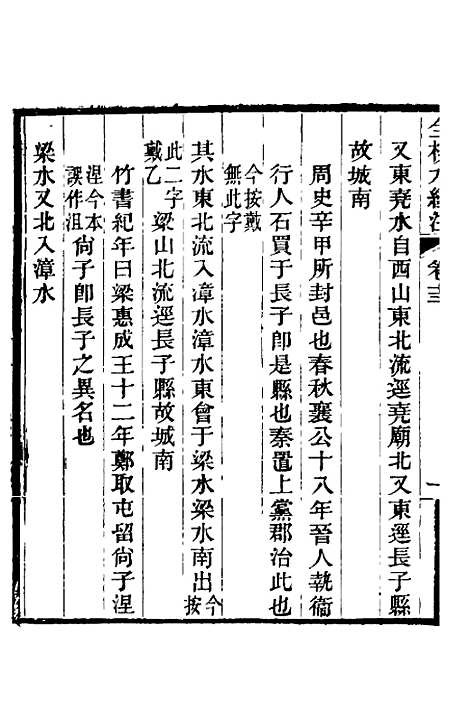 全校水經注 卷十三 一
又東堯水自西山東北流逕堯廟北又東逕長子縣
故城南
周史辛甲所封邑也春秋襄公十八年晉人執衞
行人石買于長子卽是縣也秦置上黨郡治此也
今按戴
無此字
其水東北流入漳水漳水東會于梁水梁水南出今按
此二字
戴乙
梁山北流逕長子縣故城南
竹書紀年曰梁惠成王十二年鄭取屯留尙子涅
涅今本
誤作沮
尙子卽長子之異名也
梁水又北入漳水